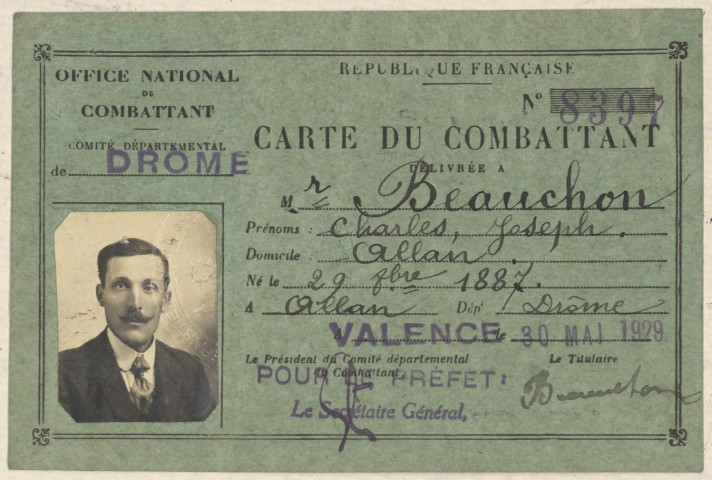 OFFICE NATIONAL
DU
COMBATTANT
COMITÉ DÉPARTEMENTAL
de DROME
RÉPUBLIQUE FRANÇAISE
N° 8397
CARTE DU COMBATTANT
DÉLIVRÉE A
Mr Beauchon
Prénoms : Charles, Joseph.
Domicile : Allan.
Né le 29 9bre 1887.
A Allan Dépt Drôme
VALENCE le 30 MAI 1929
Le Président du Comité départemental
du Combattant,
Le Titulaire
POUR LE PRÉFET:
Le Secrétaire Général,
Beauchon